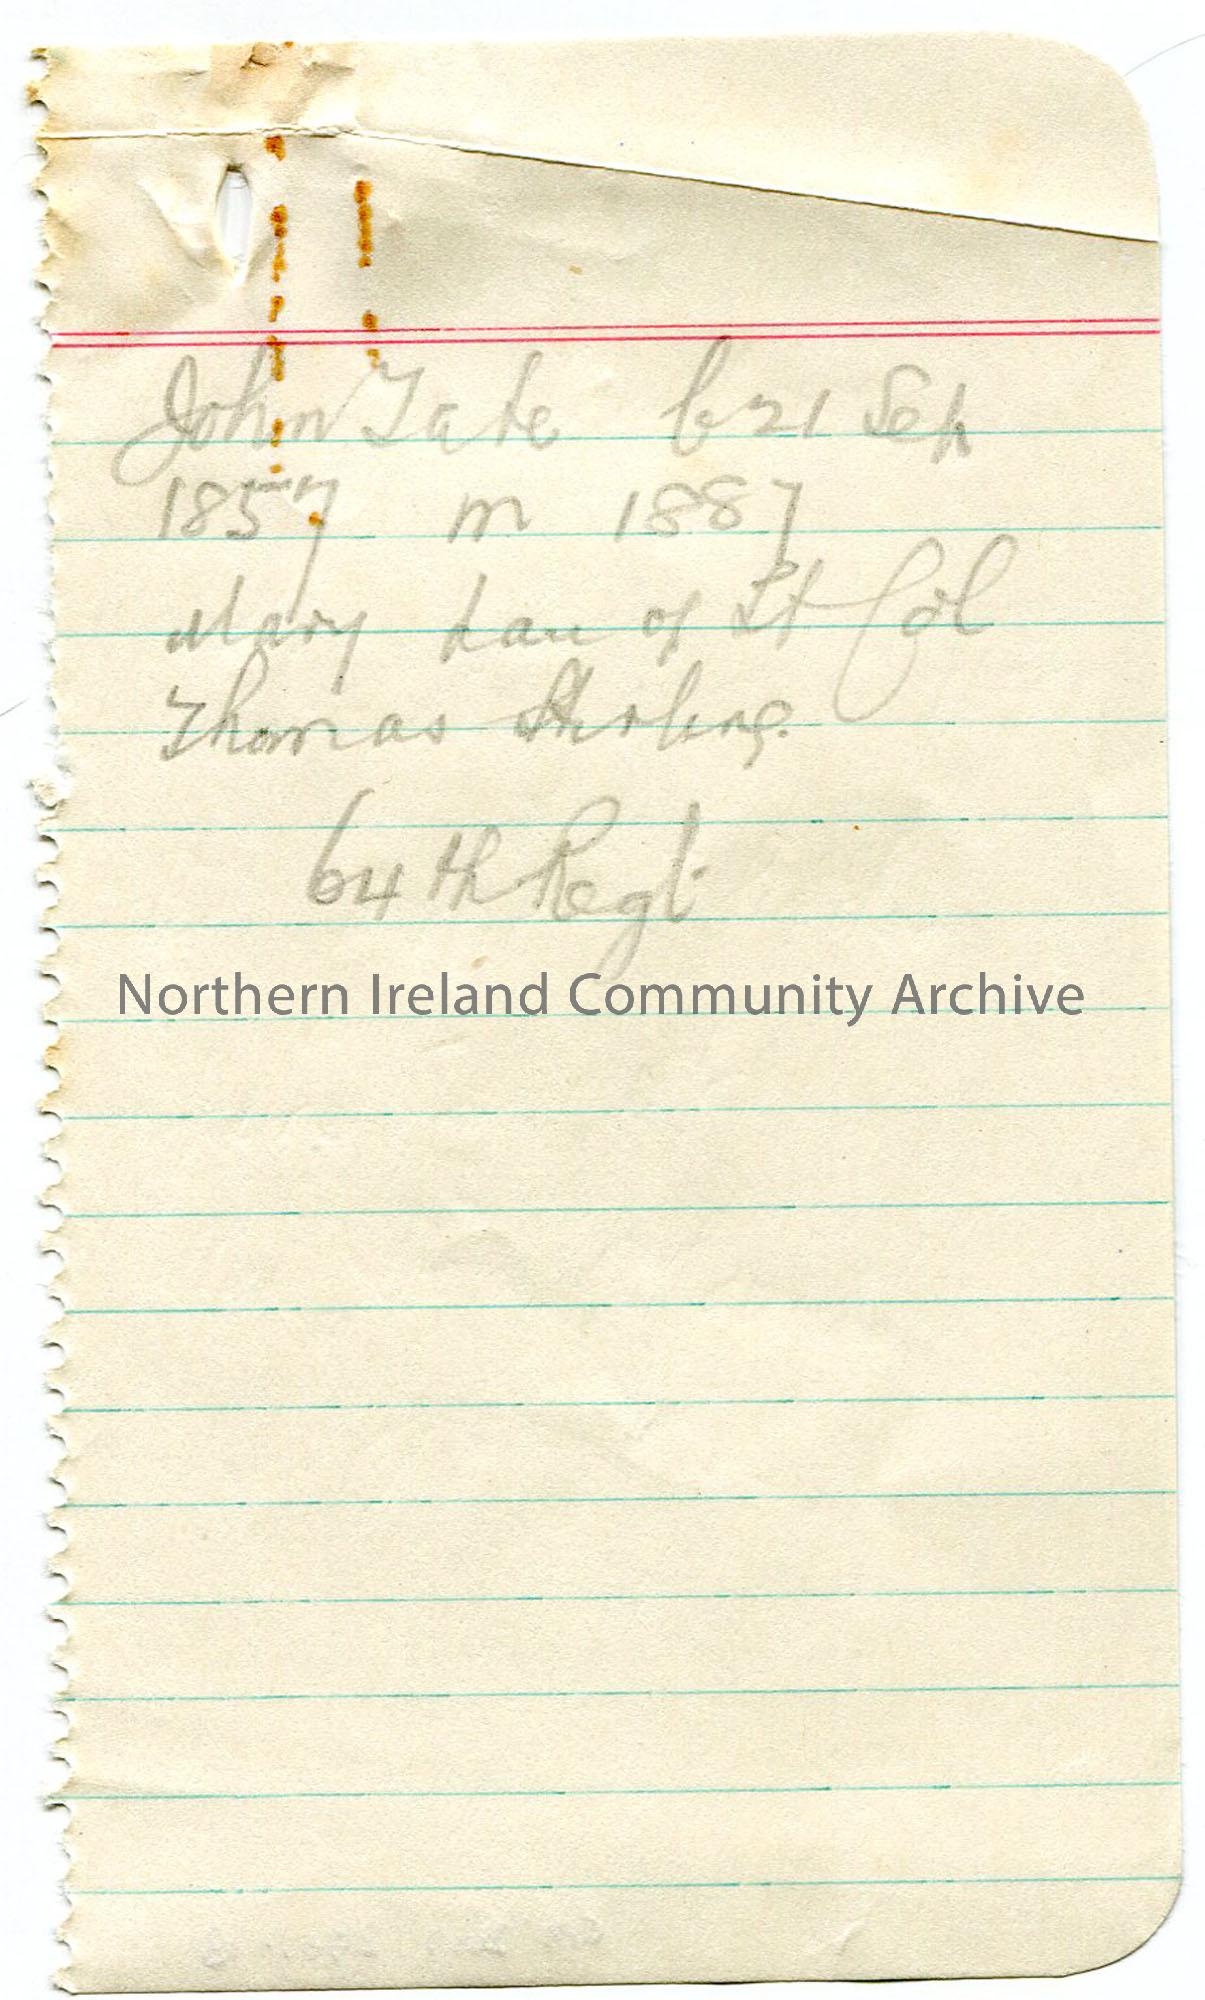 John Tate b 21 Sep
1857 m 1887
Mary dau of Lt Col
Thomas Stirling.
64th Regt
Northern Ireland Community Archive